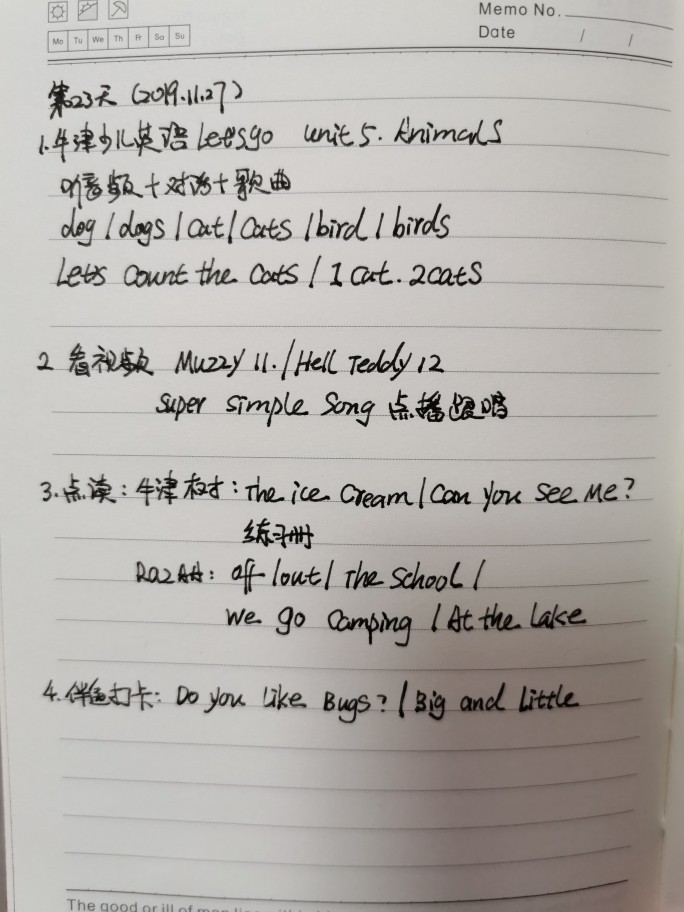 Memo No.
Mo Tu We Th Fr Sa Su
Date / /
第23天 (2019.11.27)
1.牛津少儿英语 Let's go unit 5. Animals
听音频+对话+歌曲
dog / dogs / cat / cats / bird / birds
Let's count the cats / 1 cat. 2 cats
2 看视频 Muzzy 11. / Hell Teddy 12
super simple Song 点播跟唱
3.点读:牛津树:The ice cream / Can you see me?
练习册
Raz AA: off / out / The School /
We go Camping / At the Lake
4.伴鱼打卡: Do you like Bugs? / Big and Little
The good or ill of man lies